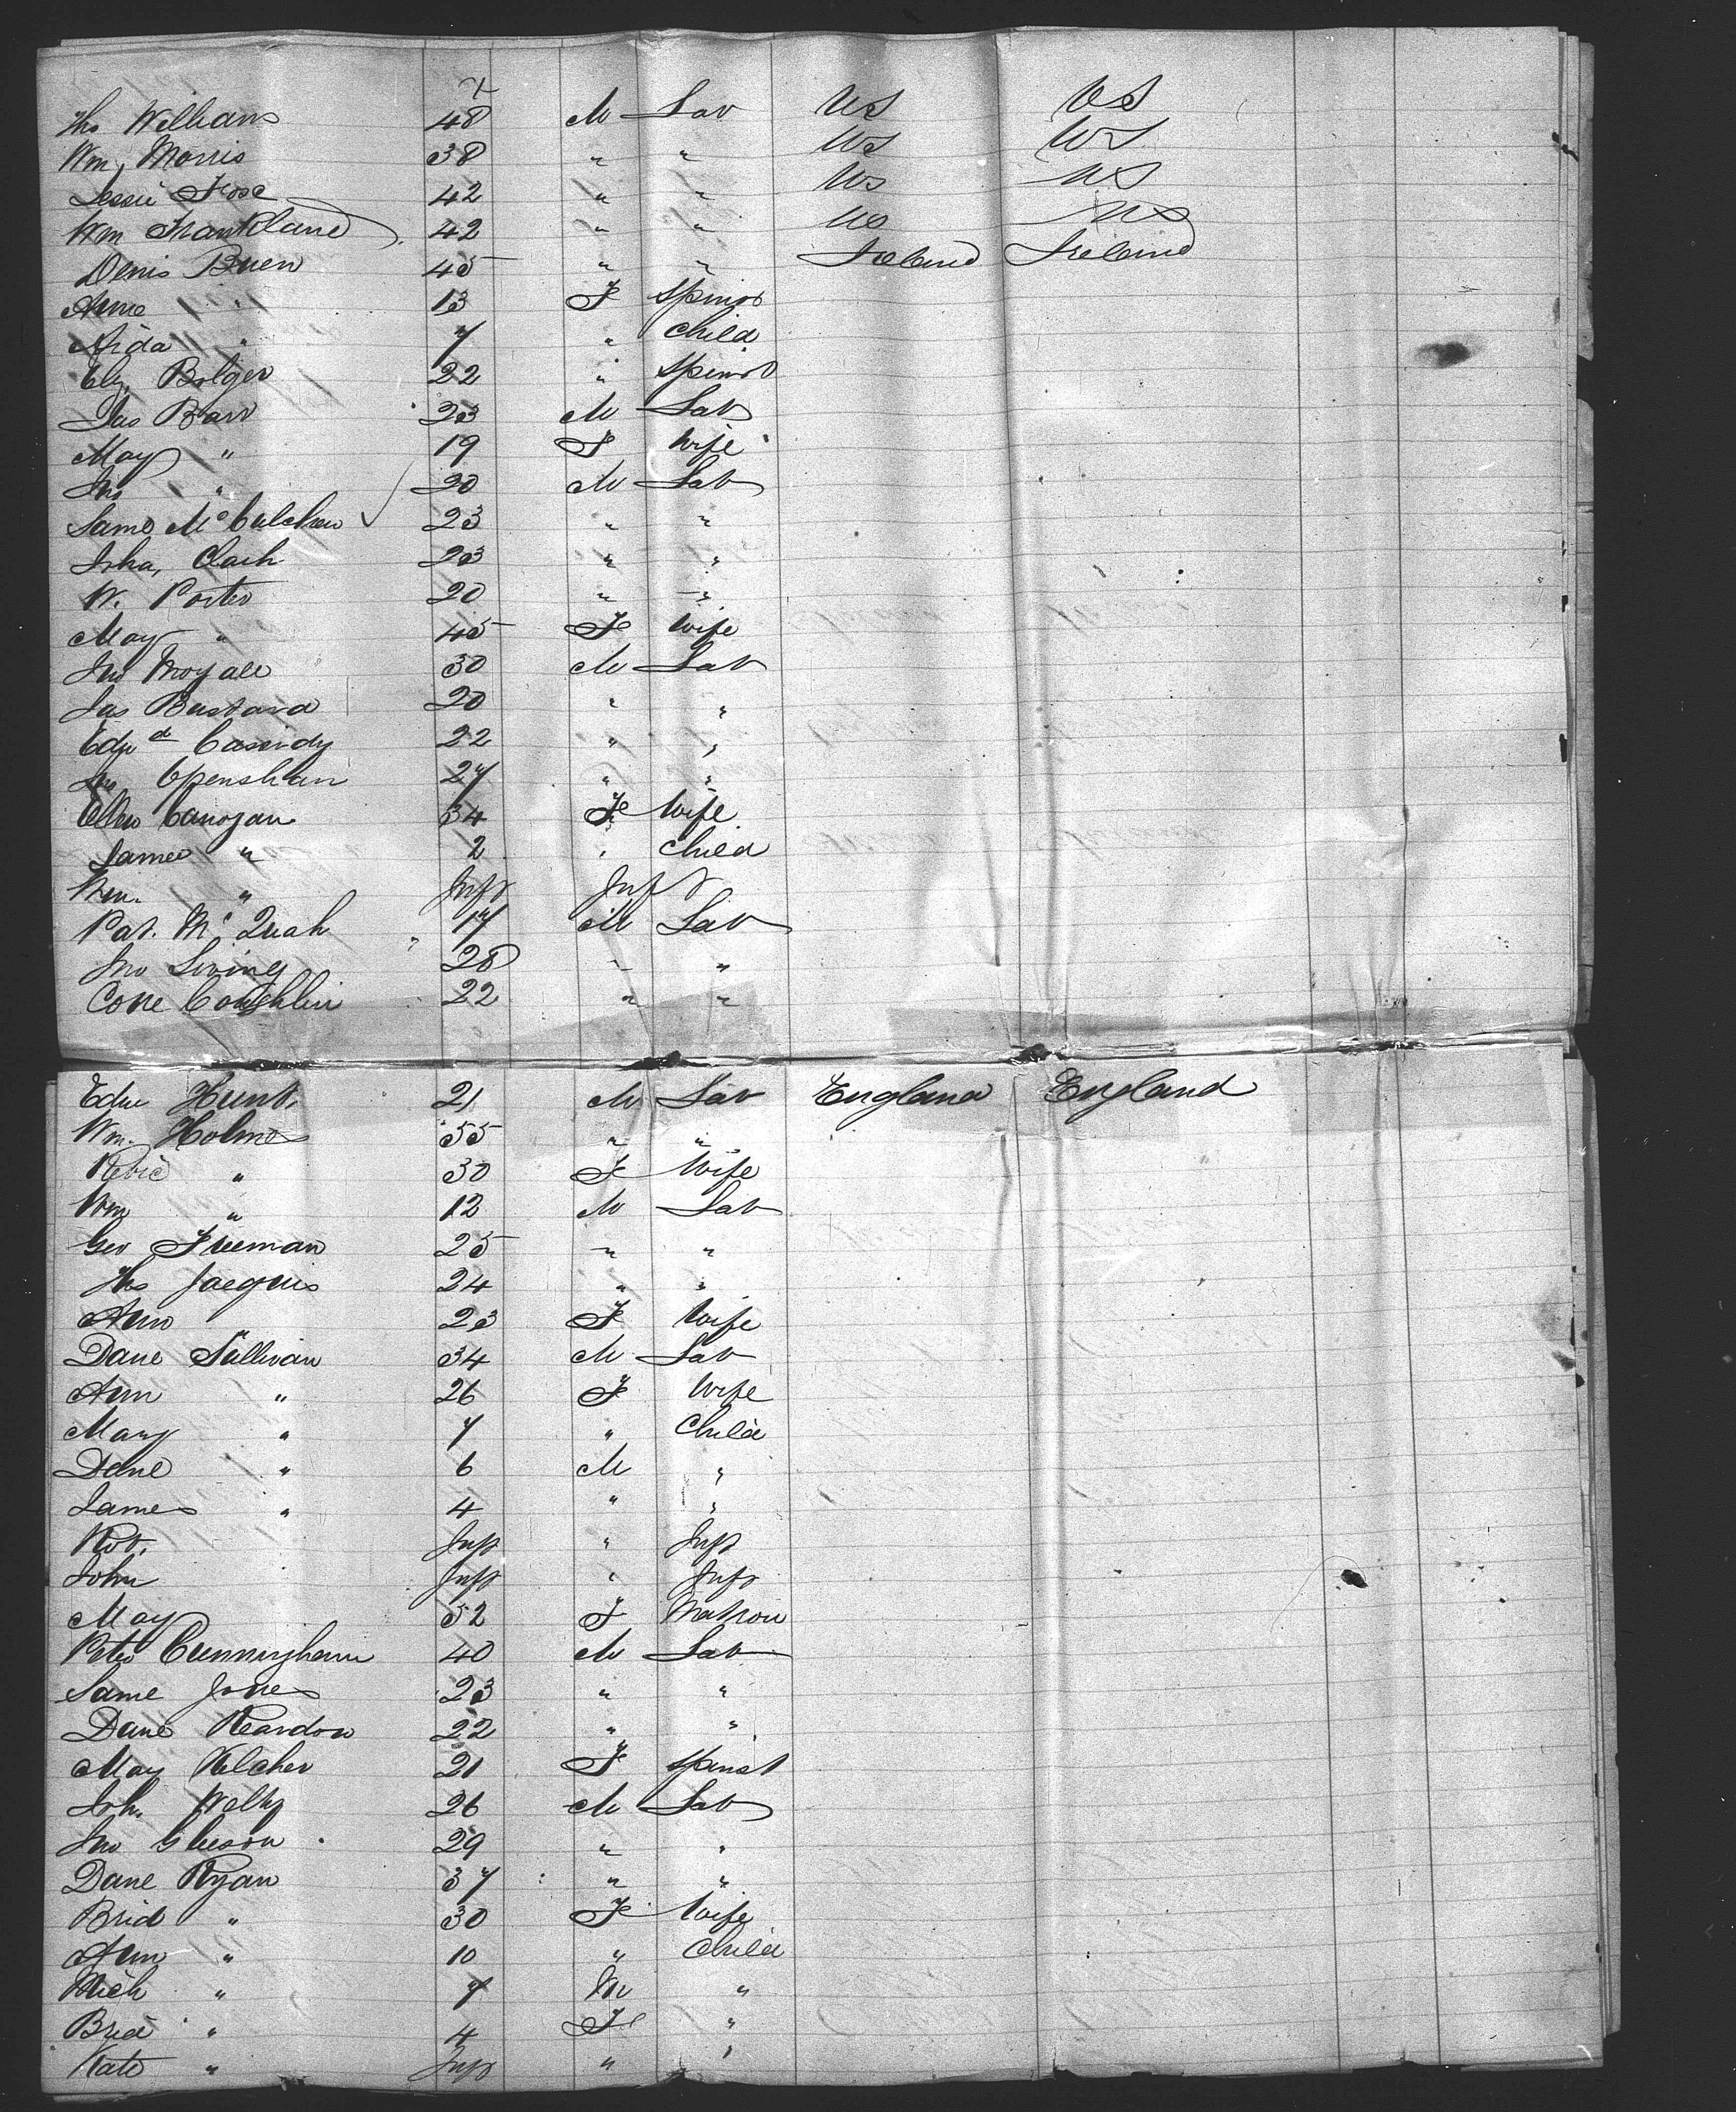 Ths Williams 48 M Lab US US
Wm Morris 38 " " US US
Jessie Rose 42 " " US US
Wm Frankland 42 " " US US
Denis Buen 45 " " Ireland Ireland
Anne " 13 F Spinst
Aida " 7 " Child
Elz. Bolger 22 " Spinst
Jas Barr 23 M Lab
May " 19 F Wife
Jno " 20 M Lab
James McCutchen 23 " "
John Clach 23 " "
W. Porter 20 " "
May " 45 F Wife
Jno 30 M Lab
Jas Bustard 20 " "
Edwd Cassidy 22 " "
Jno Openshaw 27 " "
Ellen Canogan 34 F Wife
James " 2 " Child
Wm. " Inft Inft
Pat. McQuah 17 M Lab
Jno Living 28 " "
Cone Coughlin 22 " "
Edw Hunt. 21 M Lab England England
Wm. Holmes 55 " "
" 30 F Wife
Wm " 12 M Lab
Geo Freeman 25 " "
Ths Jaeques 24 " "
Ann " 23 F Wife
Dane Sullivan 34 M Lab
Ann " 26 F Wife
Mary " 7 " Child
Dane " 6 M "
James " 4 " "
Rob. Inft " Inft
John Inft " Inft
May 52 F Matron
Peter Cunningham 40 M Lab
Same Jones 23 " "
Dane Reardon 22 " "
May Kelcher 21 F Spinst
Joh. Welby 26 M Lab
Jno Gleeson 29 " "
Dane Ryan 37 " "
Brid " 30 F Wife
Ann " 10 " Child
Mich " 7 M "
Brid " 4 F "
Kate " Inft " "